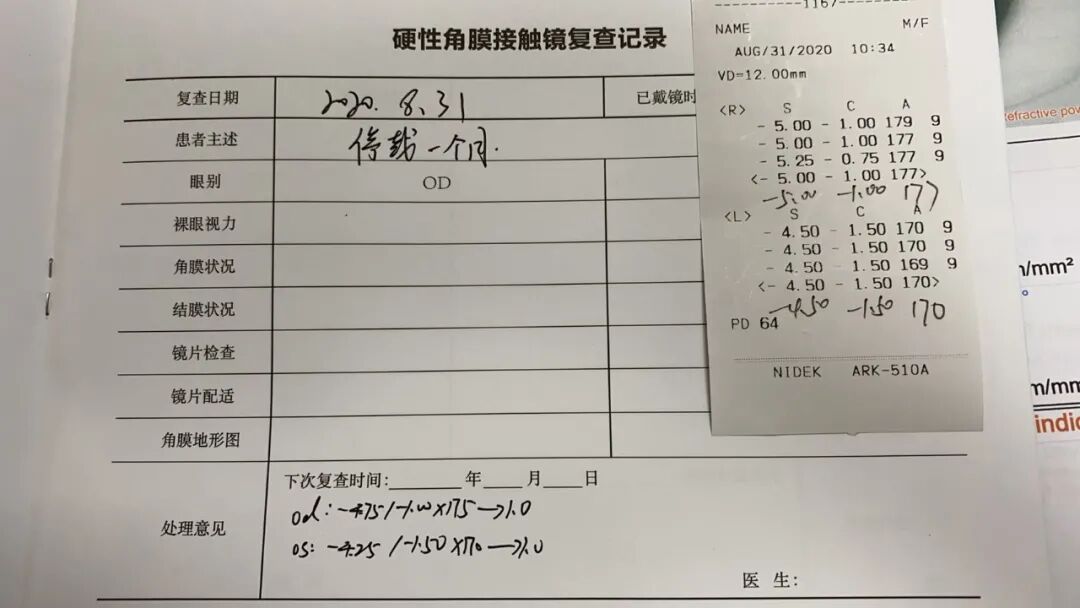 硬性角膜接触镜复查记录
复查日期 2020. 8. 31 已戴镜时
患者主述 停戴一个月.
眼别 OD
裸眼视力
角膜状况
结膜状况
镜片检查
镜片配适
角膜地形图
下次复查时间:________年____月____日
处理意见
od: -4.75/-1.00×175→1.0
os: -4.25/-1.50×170→1.0
医 生:
NAME M/F
AUG/31/2020 10:34
VD=12.00mm
<R> S C A
- 5.00 - 1.00 179 9
- 5.00 - 1.00 177 9
- 5.25 - 0.75 177 9
<- 5.00 - 1.00 177>
-5.00 -1.00 177
<L> S C A
- 4.50 - 1.50 170 9
- 4.50 - 1.50 170 9
- 4.50 - 1.50 169 9
<- 4.50 - 1.50 170>
-4.50 -1.50 170
PD 64
NIDEK ARK-510A
Refractive pow
/mm²
m/mm
indic